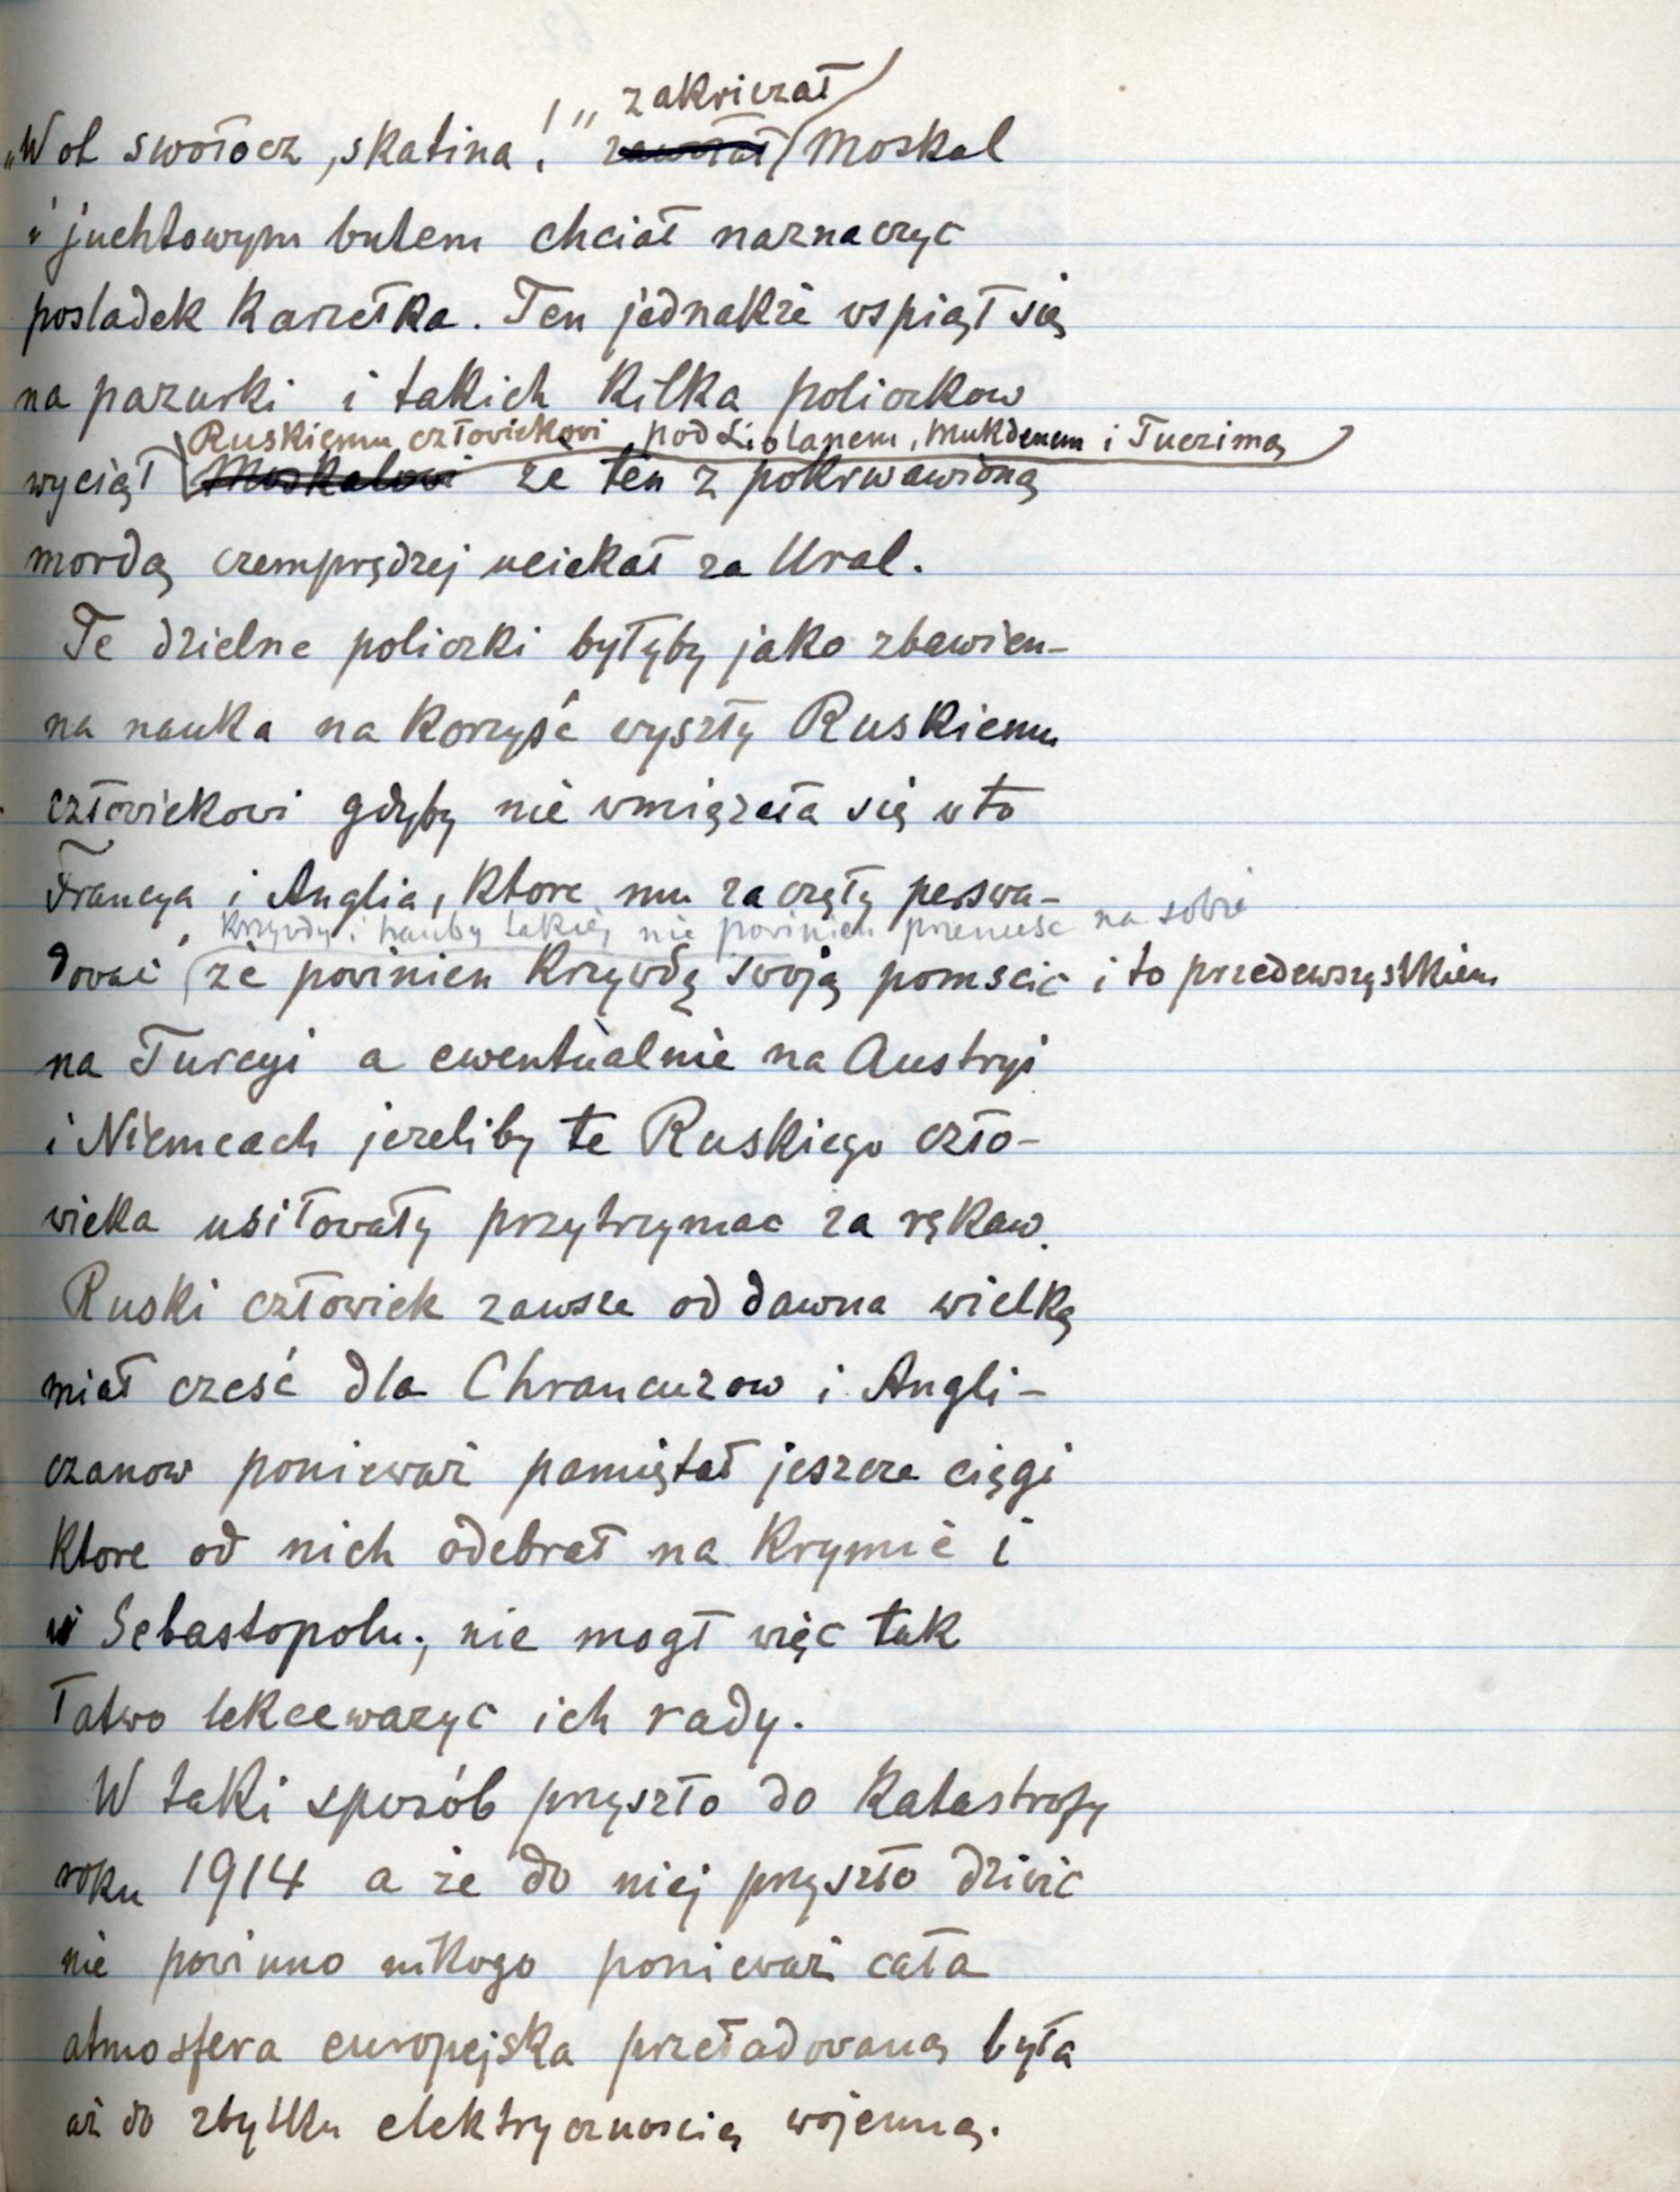 zakriczał
„Wot swołocz, skatina!" zawołał Moskal
i juchtowym butem chciał naznaczyc
posladek Karzełka. Ten jednakże wspiął się
na pazurki i takich kilka policzkow
Ruskiemu człowiekowi pod Liolanem, Mukdenem i Tuczimą
wyciął Moskalowi że ten z pokrwawioną
mordą czemprędzej uciekał za Ural.
Te dzielne policzki byłyby jako zbawien-
na nauka na korzyść wyszły Ruskiemu
człowiekowi gdyby nie wmięzała się w to
Francya i Anglia, ktore mu zaczęły perswa-
krzywdy i hanby takiej nie powinien przeniesc na sobie
dować że powinien krzywdę swoją pomscic i to przedewszystkiem
na Turcyi a ewentualnie na Austryi
i Niemcach jezeliby te Ruskiego czło-
wieka usiłowały przytrzymac za rękaw.
Ruski człowiek zawsze od dawna wielką
miał cześć dla Chrancuzow i Angli-
czanow ponieważ pamiętał jeszcze cięgi
ktore od nich odebrał na Krymie i
w Sebastopolu; nie mogł więc tak
łatwo lekcewazyc ich rady.
W taki sposób przyszło do katastrofy
roku 1914 a że do niej przyszło dziwic
nie powinno nikogo ponieważ cała
atmosfera europejska przeładowaną była
aż do zbytku elektrycznoscią wojenną.